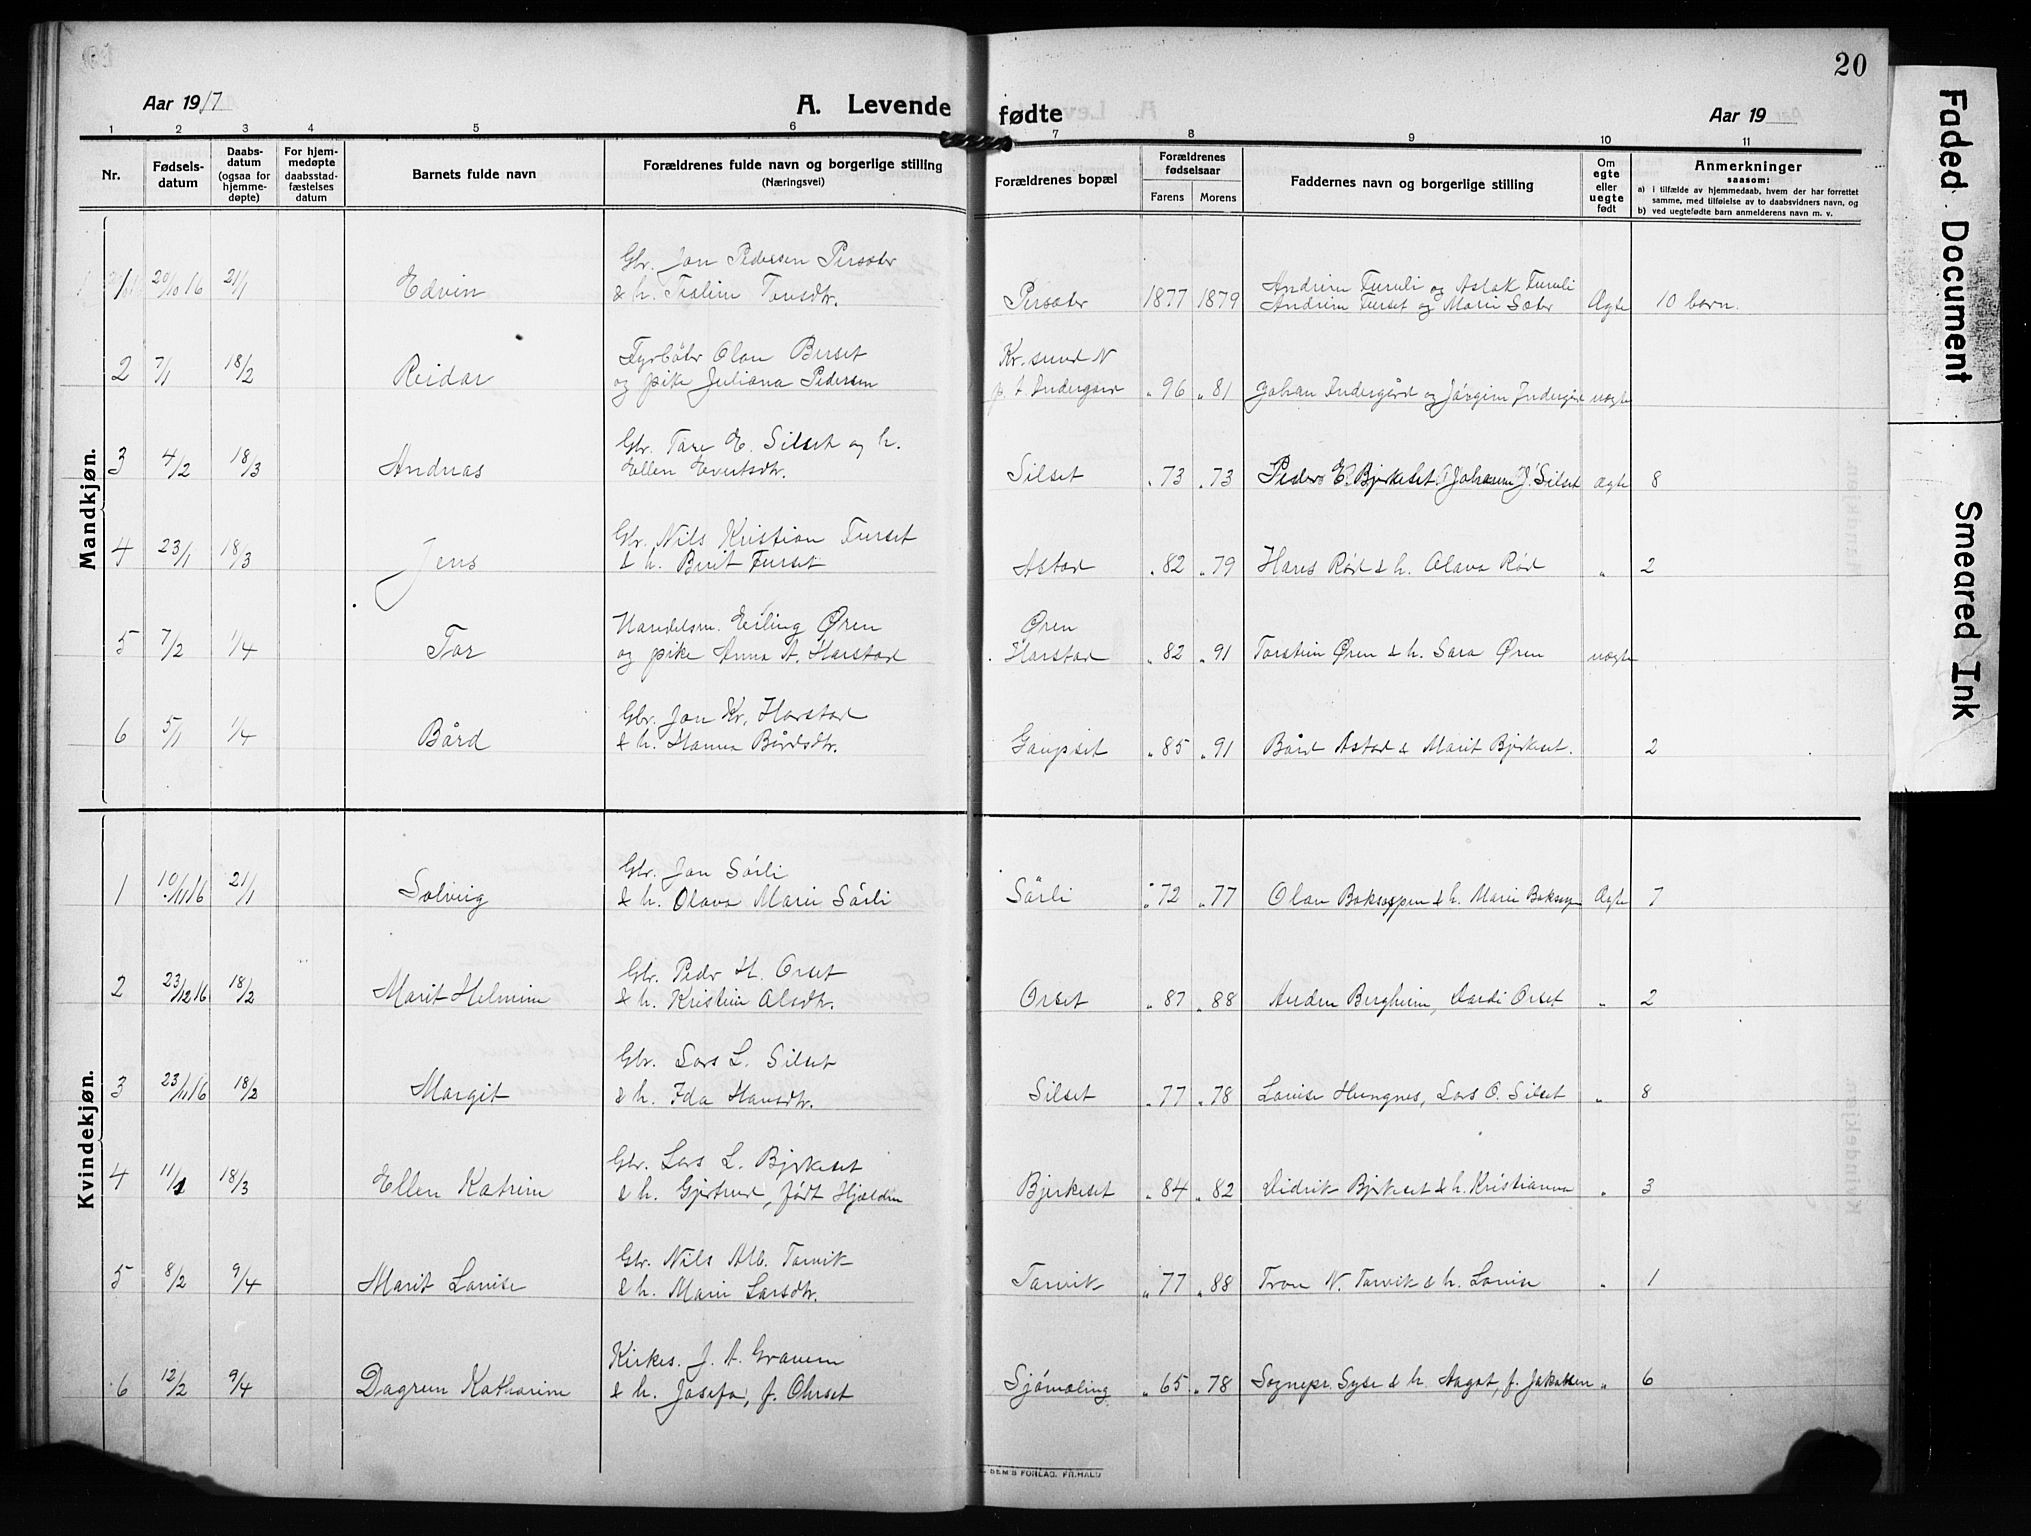 20
Aar 1917
A. Levende fødte
Aar 19
1 2 3 4 5 6 7 8 9 10 11
Nr.
Fødsels-
datum
Daabs-
datum
(ogsaa for
hjemme-
døpte)
For hjem-
medøpte
daabsstad-
fæstelses
datum
Barnets fulde navn
Forældrenes fulde navn og borgerlige stilling
(Næringsvei)
Forældrenes bopæl
Forældrenes
fødselsaar
Farens Morens
Faddernes navn og borgerlige stilling
Om
egte
eller
uegte
født
Anmerkninger
saasom:
a) i tilfælde av hjemmedaab, hvem der har forrettet
samme, med tilføielse av to daabsvidners navn, og
b) ved uegtefødte barn anmelderens navn m. v.
Mandkjøn.
Gbr. Jon Pedersen Persæter
Andrine Furuli og Aslak Furuli
1 20/10 16 21/1 Edvin & h. Tonsdtr. Persæter 1877 1879 Andrine Furset og Marie Sæter Ægte 10 barn.
Fyrbøter Olav Buset Kr.sund N
2 7/1 18/2 Reidar og pike Juliana Pedersen p. t. Indergård " 96 " 81 Johan Indergård og Jørgine Indergård uægte
Gbr. Tore E. Silset og h.
3 4/2 18/3 Andreas Ellen Evertsdtr. Silset " 73 " 73 Peder E. Bjerkeset, J. Silset ægte 8
Gbr. Nils Kristian Furset
4 23/1 18/3 Jens & h. Berit Furset Astad " 82 " 79 Hans Rød & h. Olava Rød " 2
Handelsm. Erling Øren Øren
5 7/2 1/4 Tor og pike Anna A. Harstad Harstad " 82 " 91 Torstein Øren & h. Sara Øren uægte
Gbr. Jon Kr. Harstad
6 5/1 1/4 Bård & h. Hanna Bårdsdtr. Gaupset " 85 " 91 Bård Astad & Marit Bjerkeset. 2
Kvindekjøn.
Gbr. Jon Sørli
1 10/11 16 21/1 Solveig & h. Olava Marie Sørli Sørli " 72 " 77 Olav Boksaspen & h. Marie Ægte 7
Gbr. Peder H. Orset
2 23/12 16 18/2 Marit Helmine & h. Kristine Olsdtr. Orset " 87 " 88 Anders Bergheim, Orset " 2
Gbr. Lars L. Silset
3 23/11 16 18/2 Margit & h. Ida Hansdtr. Silset " 77 " 78 Louise Hungnes, Lars O. Silset " 8
Gbr. Lars L. Bjerkeset
4 11/1 18/3 Ellen Katrine & h. Gjertrud, født Hjelden Bjerkeset " 84 " 82 Didrik Bjerkeset & h. Kristianna " 3
Gbr. Nils Alb. Torvik
5 8/2 9/4 Marit Lovise & h. Marie Larsdtr. Torvik " 77 " 88 Tron N. Torvik & h. Lovise " 1
Kirkes. J. A. Gravem
6 12/2 9/4 Dagrun Katharine & h. Josefa, f. Ohrset Sjømæling " 65 " 78 Sognepr. Syse & h. Aagot, f. Jakobsen " 6
SEM'S FORLAG. FR.HALD
Faded Document
Smeared Ink